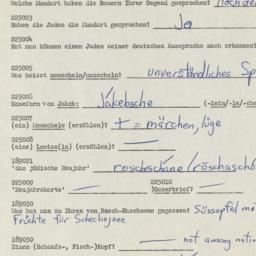 Welche Juden die Mundart der Bauern Ihrer Gegend gesprochen?
225003
Haben die Juden die Mundart gesprochen? Ja
225004
Hat man können einen Juden seiner deutschen Aussprache nach erkennen?
225005
Was heisst mooscheln/mauscheln? unverständliches
225006
Koseform von Jakob: Jakebsche (-lein/-le/-che
225007
(ein) Moeschele (erzählen): + = märchen, lüge
225008
(eine) Lootse(le) (erzählen):
189021
'das jüdische Neujahr' roschschōne/rōschaschō
225009 225010
'Neujahrskarte' Kaserbrief:
189050
Was hat man zu Ihren von Rosch-Haschoone gegessen? Süssapfel
Früchte für Schechejone
189050
Einen (Schaafs-, Fisch-)Kopf? not among